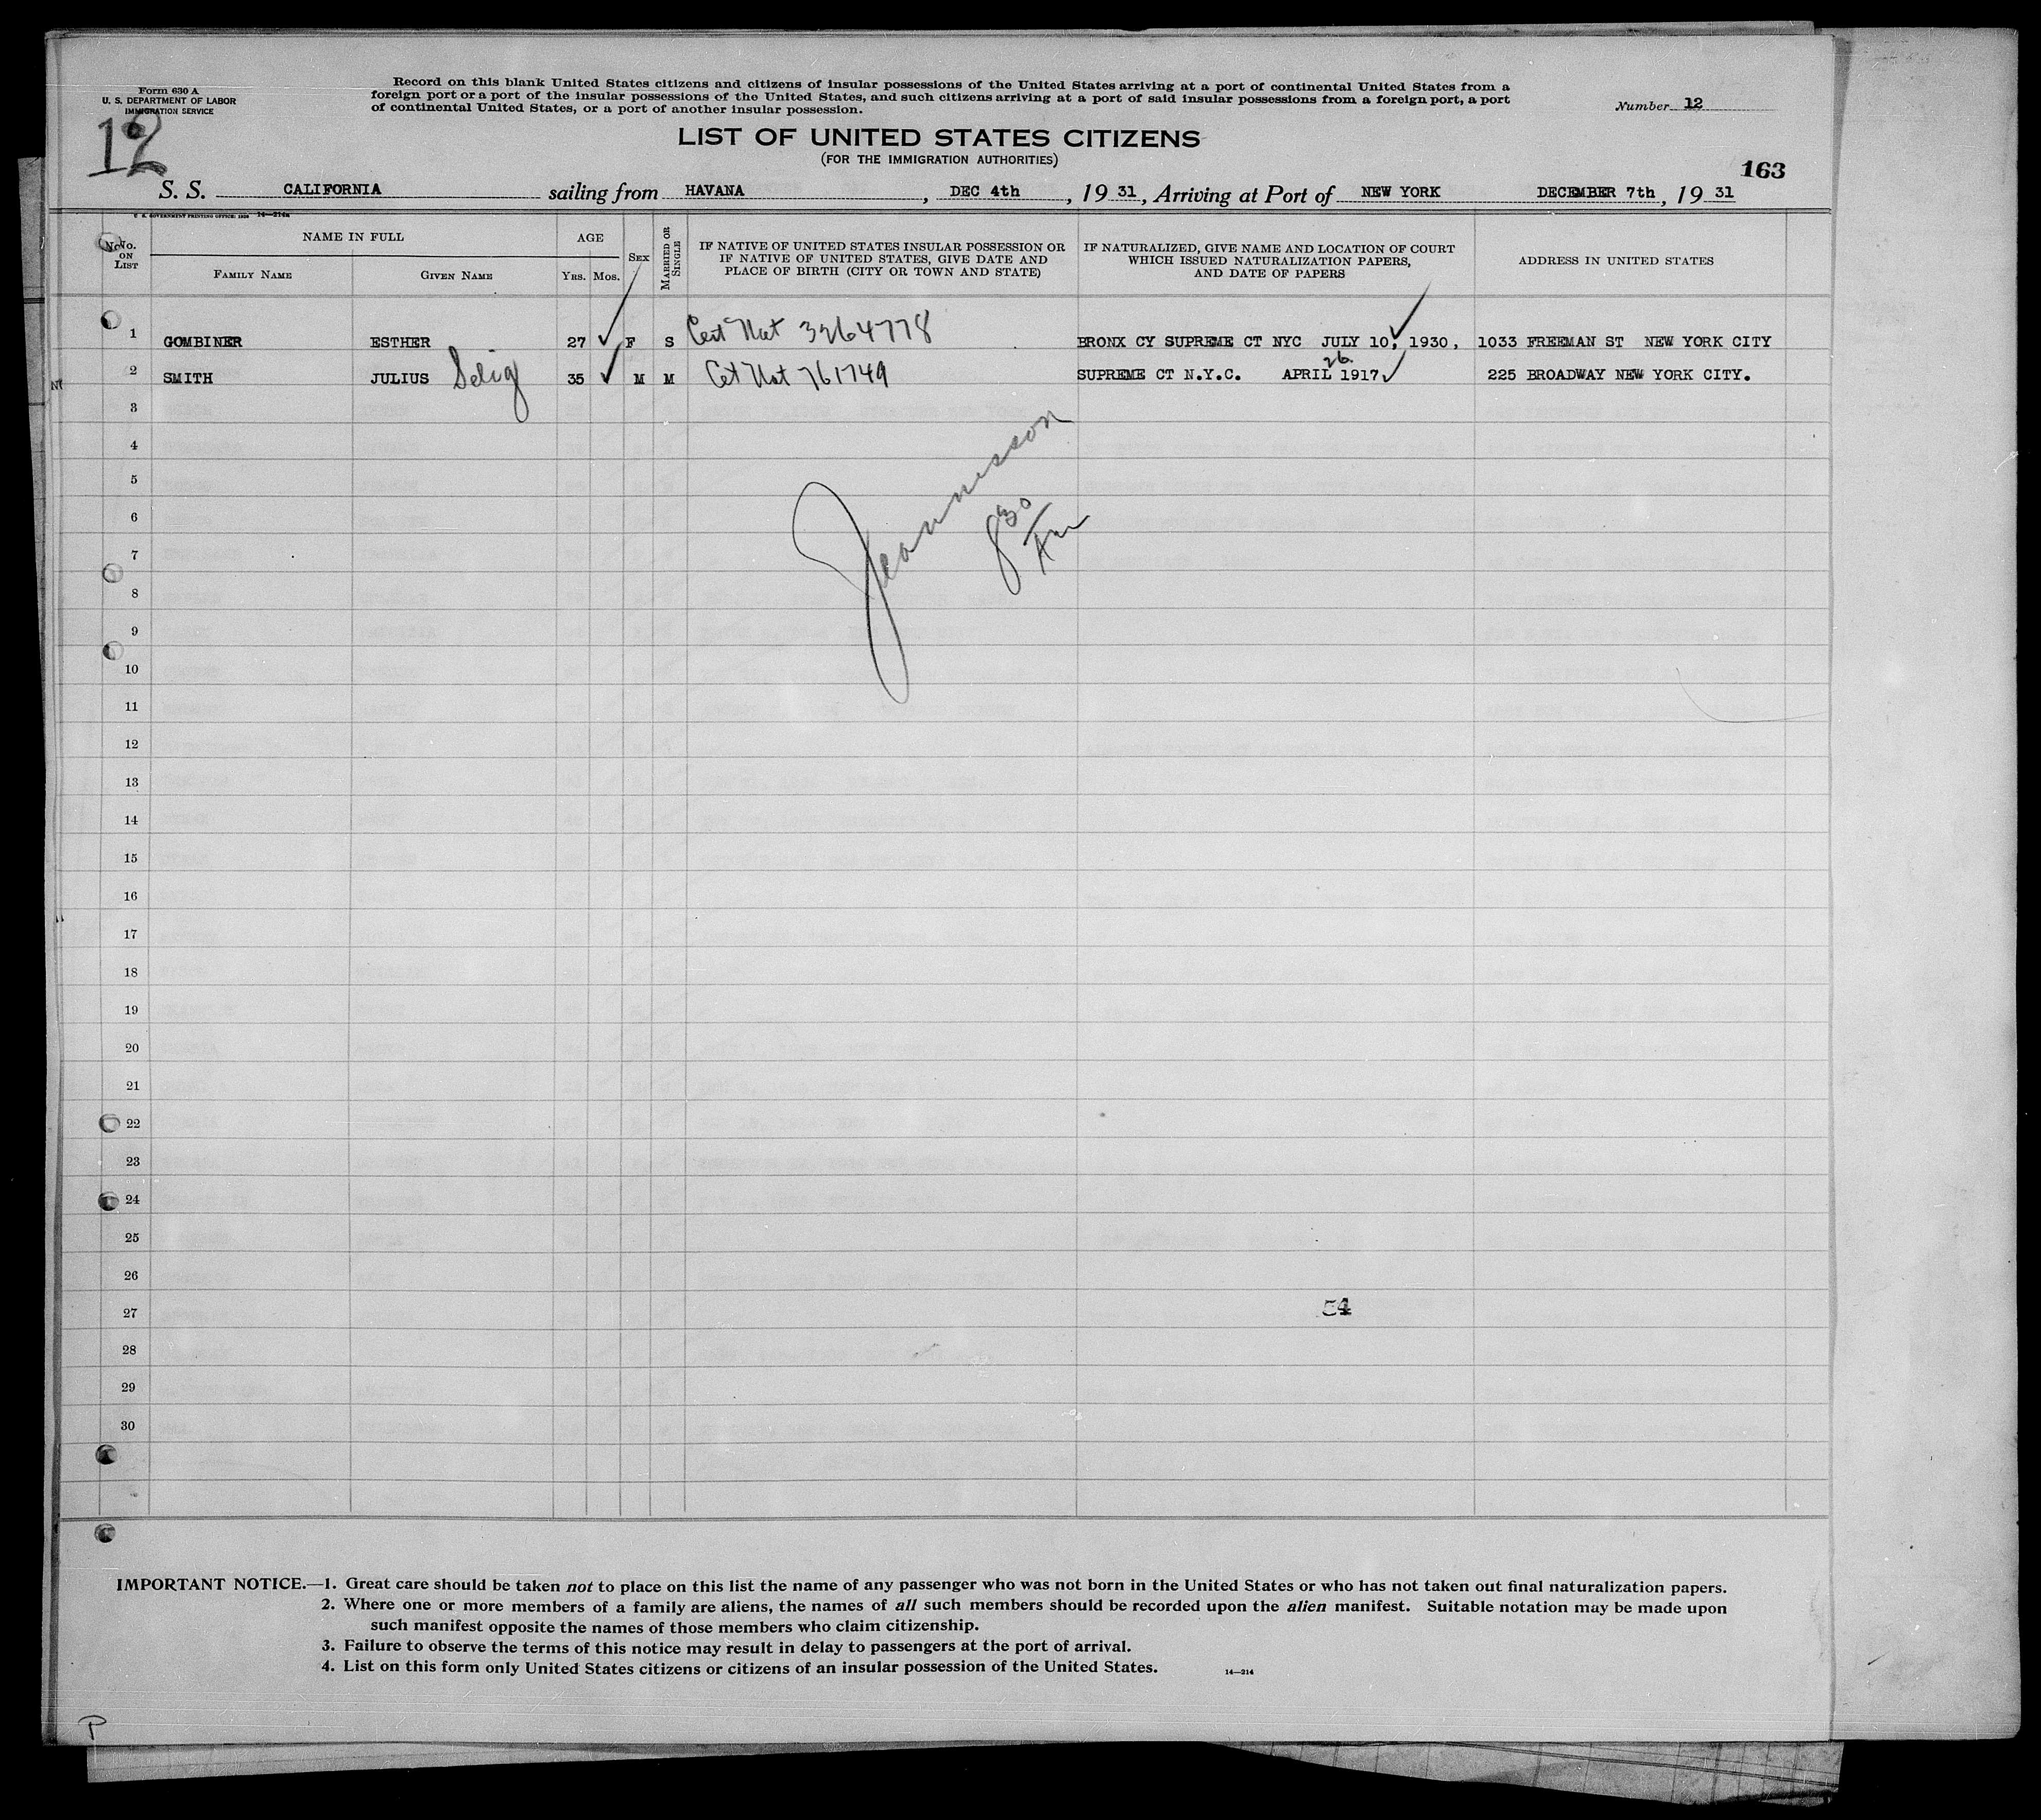 Form 630 A
U. S. DEPARTMENT OF LABOR
IMMIGRATION SERVICE
12
Record on this blank United States citizens and citizens of insular possessions of the United States arriving at a port of continental United States from a
foreign port or a port of the insular possessions of the United States, and such citizens arriving at a port of said insular possessions from a foreign port, a port
of continental United States, or a port of another insular possession.
Number 12
LIST OF UNITED STATES CITIZENS
(FOR THE IMMIGRATION AUTHORITIES)
163
S. S. CALIFORNIA sailing from HAVANA, DEC 4th, 19 31, Arriving at Port of NEW YORK DECEMBER 7th, 19 31
U. S. GOVERNMENT PRINTING OFFICE: 1930 14—214a
No. ON LIST
NAME IN FULL
FAMILY NAME
GIVEN NAME
AGE
YRS. MOS.
SEX
MARRIED OR SINGLE
IF NATIVE OF UNITED STATES INSULAR POSSESSION OR
IF NATIVE OF UNITED STATES, GIVE DATE AND
PLACE OF BIRTH (CITY OR TOWN AND STATE)
IF NATURALIZED, GIVE NAME AND LOCATION OF COURT
WHICH ISSUED NATURALIZATION PAPERS,
AND DATE OF PAPERS
ADDRESS IN UNITED STATES
1 GOMBINER ESTHER 27 ✓ F S Cert Nat 3264778 BRONX CY SUPREME CT NYC JULY 10, 1930, 1033 FREEMAN ST NEW YORK CITY
2 SMITH JULIUS Selig 35 ✓ M M Cet Nat 761749 SUPREME CT N.Y.C. APRIL 26 1917 ✓ 225 BROADWAY NEW YORK CITY.
3
4
5
6
7
8
9
10
11
12
13
14
15
16
17
18
19
20
21
22
23
24
25
26
27 54
28
29
30
Jeannisson
8 30
Am
IMPORTANT NOTICE.—1. Great care should be taken not to place on this list the name of any passenger who was not born in the United States or who has not taken out final naturalization papers.
2. Where one or more members of a family are aliens, the names of all such members should be recorded upon the alien manifest. Suitable notation may be made upon
such manifest opposite the names of those members who claim citizenship.
3. Failure to observe the terms of this notice may result in delay to passengers at the port of arrival.
4. List on this form only United States citizens or citizens of an insular possession of the United States.
14—214
P